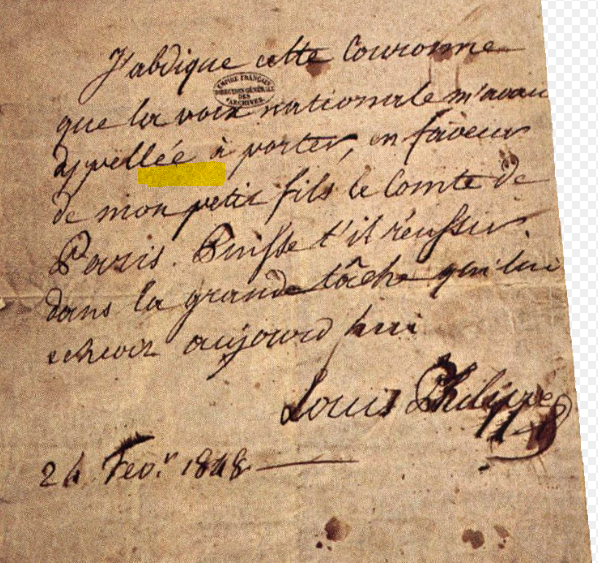 J'abdique cette Couronne
EMPIRE FRANÇAIS
DIRECTION GÉNÉRALE
DES
ARCHIVES
que la voix nationale m'avait
appellée à porter, en faveur
de mon petit fils le Comte de
Paris. Puisse t'il réussir
dans la grande tâche qui lui
echeoir aujourd'hui
Louis Philippe
24 Fevr. 1848